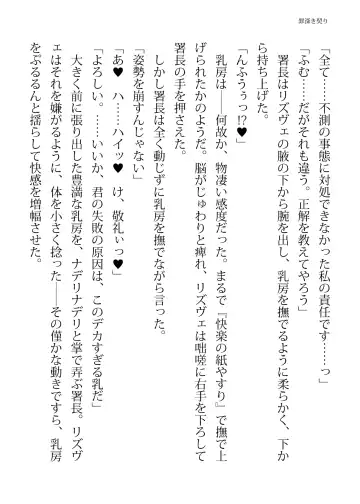 罪深き契り
「全て……不測の事態に対処できなかった私の責任です……っ」
「ふむ……だがそれも違う。正解を教えてやろう」
「んふうぅっ!?♥」
　署長はリズヴェの腋の下から腕を出し、乳房を撫でるように柔らかく、下か
ら持ち上げた。
　乳房は――何故か、物凄い感度だった。まるで『快楽の紙やすり』で撫で上
げられたかのようだ。脳がじゅわりと痺れ、リズヴェは咄嗟に右手を下ろして
署長の手を押さえた。
　しかし署長は全く動じずに乳房を撫でながら言った。
「姿勢を崩すんじゃない」
「あ♥　ハ……ハイッ♥　け、敬礼ぃっ♥」
「よろしい。……いいか、君の失敗の原因は、このデカすぎる乳だ」
　大きく前に張り出した豊満な乳房を、ナデリナデリと掌で弄ぶ署長。リズヴ
ェはそれを嫌がるように、体を小さく捻った――その僅かな動きですら、乳房
をぶるるんと揺らして快感を増幅させた。